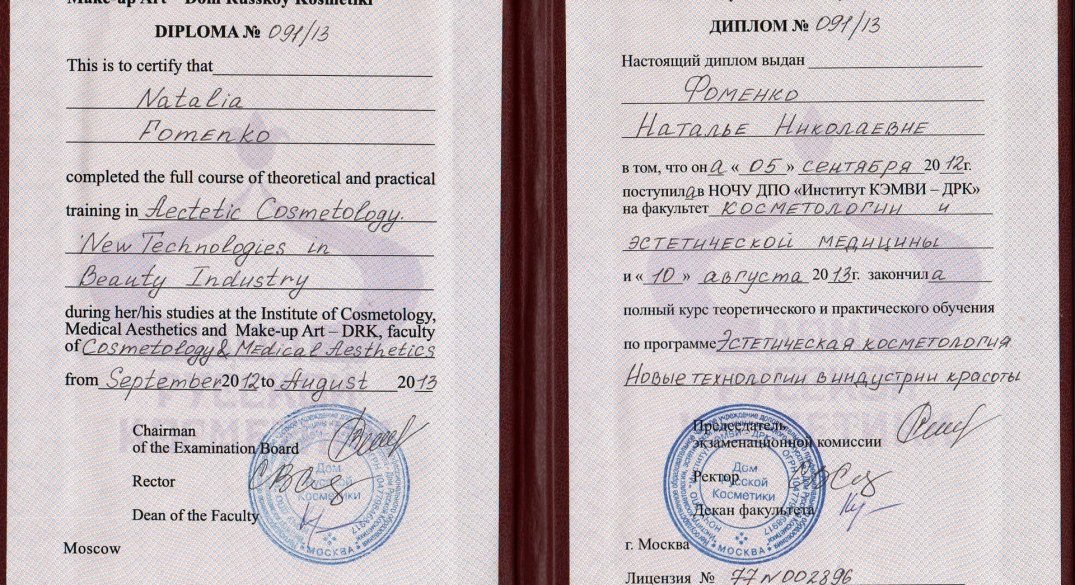 Make-up Art – Dom Russkoy Kosmetiki
DIPLOMA № 091/13
This is to certify that
Natalia
Fomenko
completed the full course of theoretical and practical
training in Aectetic Cosmetology.
New Technologies in
Beauty Industry
during her/his studies at the Institute of Cosmetology,
Medical Aesthetics and Make-up Art – DRK, faculty
of Cosmetology & Medical Aesthetics
from September 2012 to August 2013
Chairman
of the Examination Board
Rector
Dean of the Faculty
Moscow
Дом
Русской
Косметики
МОСКВА
ДИПЛОМ № 091/13
Настоящий диплом выдан
Фоменко
Наталье Николаевне
в том, что она « 05 » сентября 2012г.
поступила в НОЧУ ДПО «Институт КЭМВИ – ДРК»
на факультет косметологии и
эстетической медицины
и « 10 » августа 2013г. закончила
полный курс теоретического и практического обучения
по программе Эстетическая косметология
Новые технологии в индустрии красоты
Председатель
экзаменационной комиссии
Ректор
Декан факультета
г. Москва
Лицензия № 77 N 002896
Дом
Русской
Косметики
МОСКВА